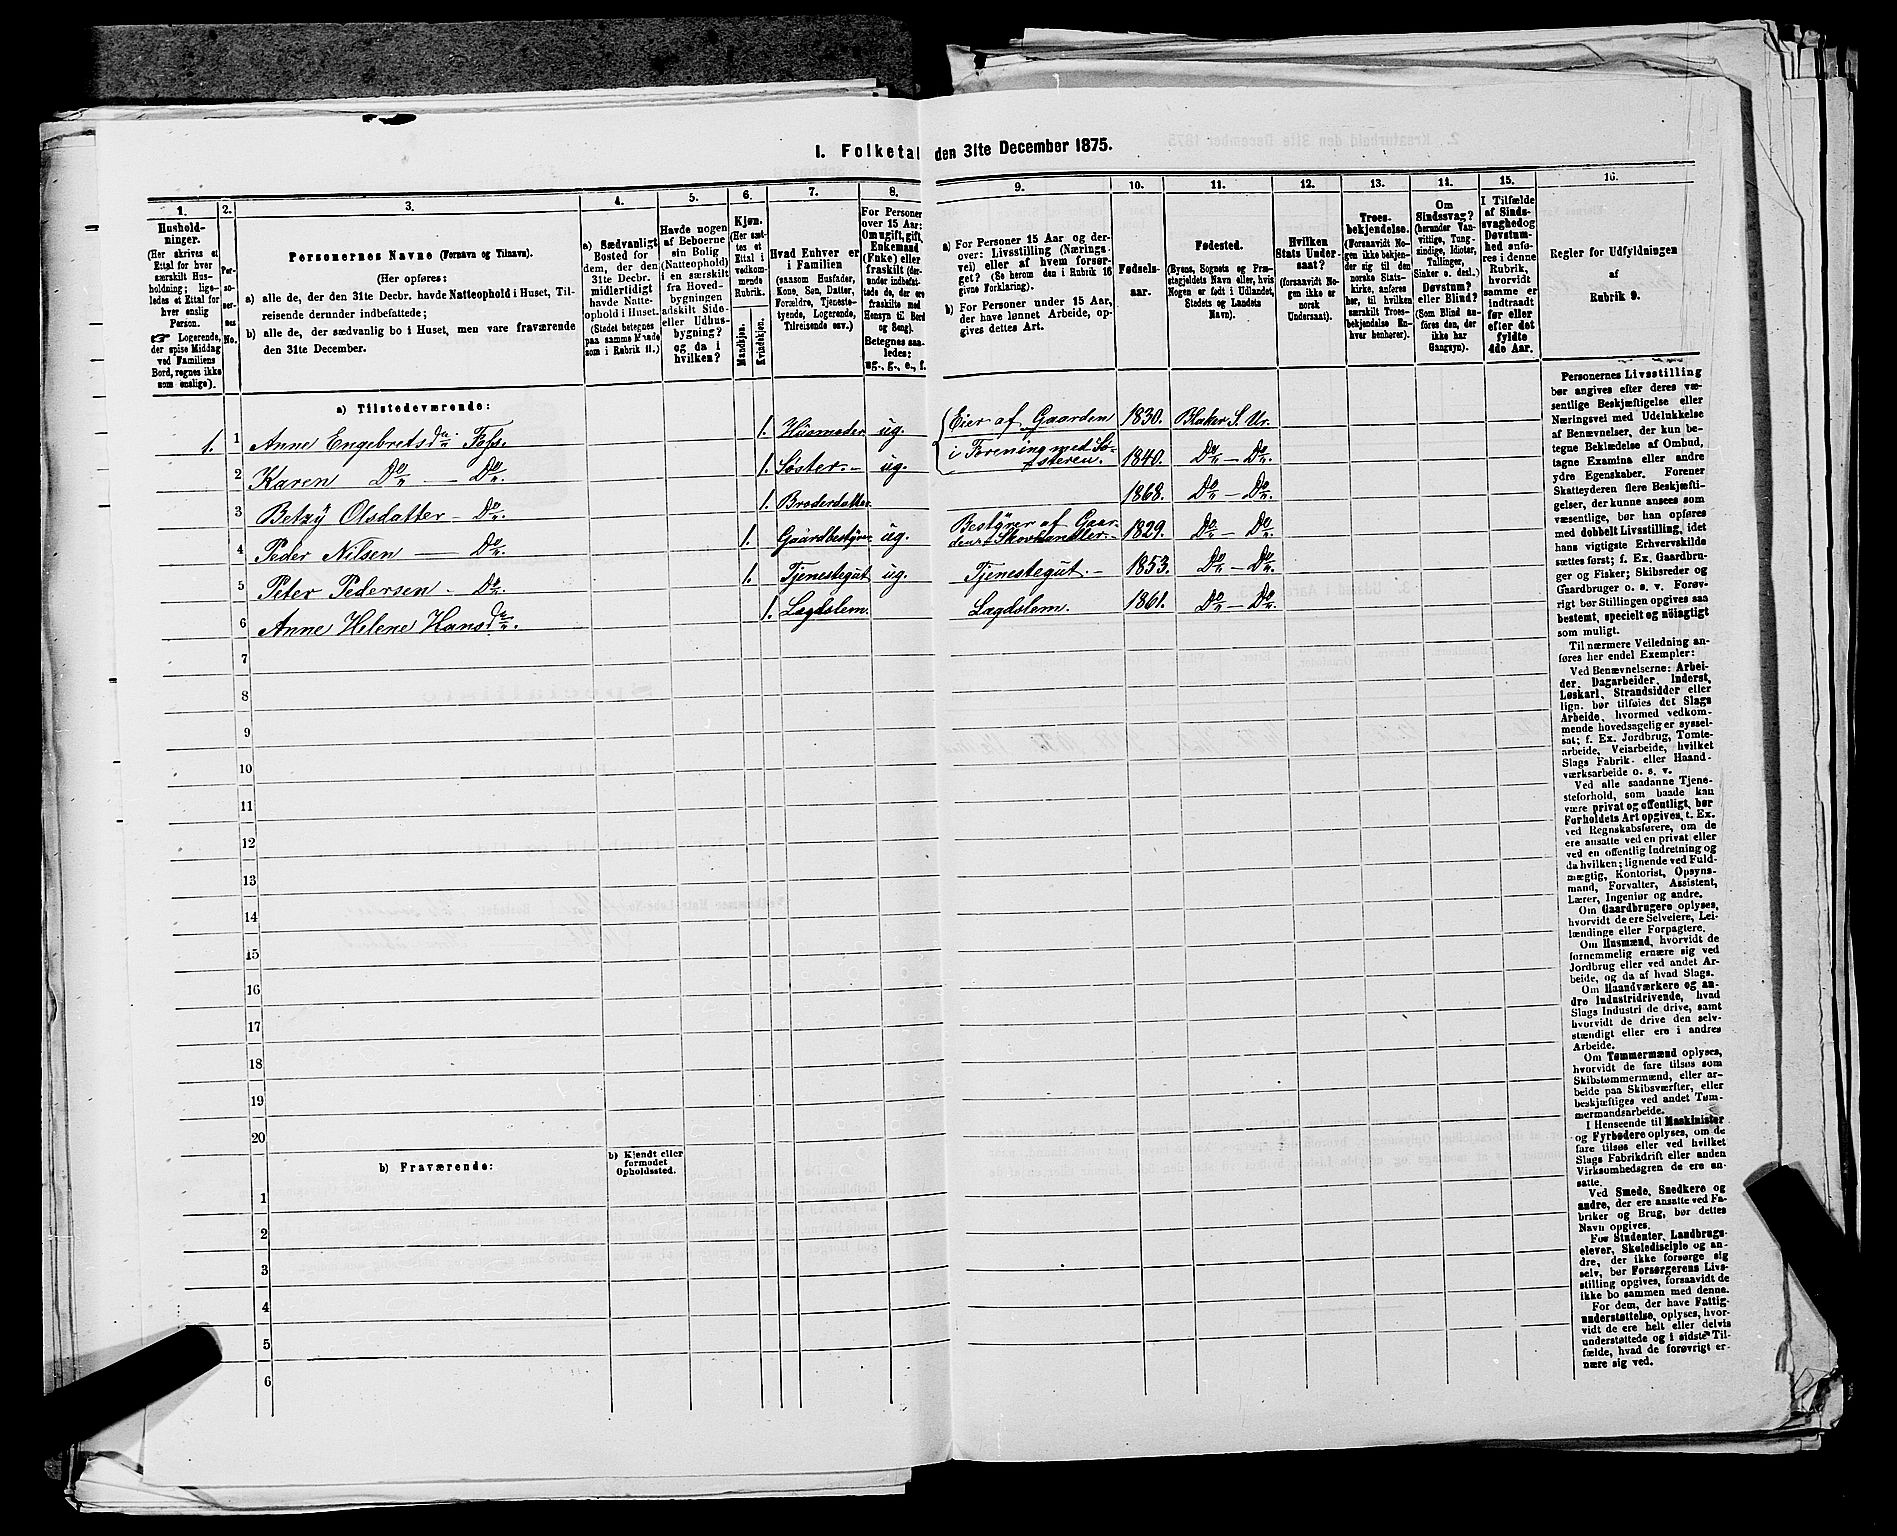 1. Folketal den 31te December 1875.
1. 2. 3. 4. 5. 6. 7. 8. 9. 10. 11. 12. 13. 14. 15. 16.
Hushold-
ninger.
(Her skrives et
Ettal for hver
særskilt Hus-
holdning; lige-
ledes et Ettal for
hver enslig
Person.
☞ Logerende,
der spise Middag
ved Familiens
Bord, regnes ikke
som enslige).
Per-
so-
ner-
nes
No.
Personernes Navne (Fornavn og Tilnavn).
(Her opføres:
a) alle de, der den 31te Decbr. havde Natteophold i Huset, Til-
reisende derunder indbefattede;
b) alle de, der sædvanlig bo i Huset, men vare fraværende
den 31te December.
a) Sædvanligt
Bosted for
dem, der den
31te Decbr.
midlertidigt
havde Natte-
ophold i Huset.
(Stedet betegnes
paa samme Maade
som i Rubrik 11.)
Havde nogen
af Beboerne
sin Bolig
(Natteophold)
i en særskilt
fra Hoved-
bygningen
adskilt Side-
eller Udhus-
bygning?
og da i
hvilken?
Kjøn.
(Her sæt-
tes et
Ettal i
vedkom-
mende
Rubrik.
Mandkjøn.
Kvindekjøn.
Hvad Enhver er
i Familien
(saasom Husfader,
Kone, Søn, Datter,
Forældre, Tjeneste-
tyende, Logerende,
Tilreisende osv.)
For Personer
over 15 Aar:
Om ugift, gift,
Enkemand
(Enke) eller
fraskilt (der-
under indbefat-
tede de, der ere
fraskilte med
Hensyn til Bord
og Seng).
Betegnes saa-
ledes:
ug., g., e., f.
a) For Personer 15 Aar og der-
over: Livsstilling (Nærings-
vei) eller af hvem forsør-
get? (Se herom den i Rubrik 16
givne Forklaring).
b) For Personer under 15 Aar,
der have lønnet Arbeide, op-
gives dettes Art.
Fødsels-
aar.
Fødested.
(Byens, Sognets og Præ-
stegjeldets Navn, eller, hvis
Nogen er født i Udlandet,
Stedets og Landets
Navn).
Hvilken
Stats Under-
saat?
(forsaavidt No-
gen ikke er
norsk
Undersaat).
Troes-
bekjendelse.
(Forsaavidt No-
gen ikke bekjen-
der sig til den
norske Stats-
kirke, anføres
her, til hvilken
særskilt Troes-
bekjendelse En-
hver henhører).
Om
Sindssvag?
(herunder Van-
vittige, Tung-
sindige, Idioter,
Tullinger,
Sinker o. desl.)
Døvstum?
eller Blind?
(Som Blind an-
føres den, der
ikke har
Gangsyn).
I Tilfælde
af Sinds-
svaghed og
Døvstum-
hed anfø-
res i denne
Rubrik,
hvorvidt
samme er
indtraadt
før eller
efter det
fyldte
4de Aar.
Regler for Udfyldningen
af
Rubrik 9.
a) Tilstedeværende:
1. 1 Anne Engebretsd. Foss. 1. Husmoder ug. Eier af Gaarden 1830. Blaker S. Ur.
2 Karen Do — Do 1. Søster ug. i Forening med Sø-
steren. 1840. Do — Do
3 Betzy Olsdatter Do 1. Broderdatter 1868. Do — Do
4 Peder Nilsen — Do 1. Gaardbestyrer ug. Bestyrer af Gaar-
den + Skovhandler 1829. Do — Do
5 Peter Pedersen Do 1. Tjenestegut ug. Tjenestegut 1853. Do — Do
6 Anne Helene Hansd. 1. Lægdslem. Lægdslem. 1861. Do — Do
7
8
9
10
11
12
13
14
15
16
17
18
19
20
b) Fraværende: b) Kjendt eller
formodet
Opholdssted.
1
2
3
4
5
6
Personernes Livsstilling
bør angives efter deres væ-
sentlige Beskjæftigelse eller
Næringsvei med Udelukkelse
af Benævnelser, der kun be-
tegne Beklædelse af Ombud,
tagne Examina eller andre
ydre Egenskaber. Forener
Skatteyderen flere Beskjæfti-
gelser, der kunne ansees som
væsentlige, bør han opføres
med dobbelt Livsstilling, idet
hans vigtigste Erhvervskilde
sættes først; f. Ex. Gaardbru-
ger og Fisker; Skibsreder og
Gaardbruger o. s. v. Forøv-
rigt bør Stillingen opgives saa
bestemt, specielt og nøiagtigt
som muligt.
Til nærmere Veiledning an-
føres her endel Exempler:
Ved Benævnelserne: Arbei-
der, Dagarbeider, Inderst,
Løskarl, Strandsidder eller
lign. bør tilføies det Slags
Arbeide, hvormed vedkom-
mende hovedsagelig er syssel-
sat; f. Ex. Jordbrug, Tomte-
arbeide, Veiarbeide, hvilket
Slags Fabrik- eller Haand-
værksarbeide o. s. v.
Ved alle saadanne Tjene-
steforhold, som baade kan
være privat og offentligt, bør
Forholdets Art opgives, t. Ex.
ved Regnskabsførere, om de
ere ansatte ved en privat eller
ved en offentlig Indretning og
da hvilken; lignende ved Fuld-
mægtig, Kontorist, Opsyns-
mand, Forvalter, Assistent,
Lærer, Ingeniør og andre.
Om Gaardbrugere oplyses,
hvorvidt de ere Selveiere, Lei-
lændinge eller Forpagtere.
Om Husmænd, hvorvidt de
fornemmelig ernære sig ved
Jordbrug eller ved andet Ar-
beide, og da af hvad Slags.
Om Haandværkere og an-
dre Industridrivende, hvad
Slags Industri de drive, samt
hvorvidt de drive den selv-
stændigt eller ere i andres
Arbeide.
Om Tømmermænd oplyses,
hvorvidt de fare tilsøs som
Skibstømmermænd, eller ar-
beide paa Skibsværfter, eller
beskjæftiges ved andet Tøm-
mermandsarbeide.
I Henseende til Maskinister
og Fyrbødere oplyses, om de
fare tilsøs eller ved hvilket
Slags Fabrikdrift eller anden
Virksomhedsgren de ere an-
satte.
Ved Smede, Snedkere og
andre, der ere ansatte ved Fa-
briker og Brug, bør dettes
Navn opgives.
For Studenter, Landbrugs-
elever, Skoledisciple og an-
dre, der ikke forsørge sig
selv, bør Forsørgerens Livs-
stilling opgives, forsaavidt de
ikke bo sammen med denne.
For dem, der have Fattig-
understøttelse, oplyses, hvor-
vidt de ere helt eller delvis
understøttede og i sidste Til-
fælde, hvad de forøvrigt er-
nære sig ved.